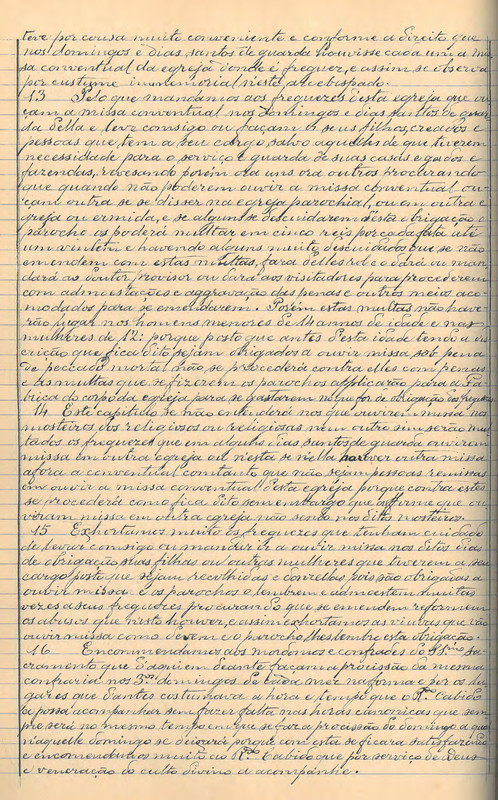 teve por cousa muito conveniente e conforme a Direito que
nos domingos e dias santos de guarda houvisse cada um a mis
sa conventual da egreja donde é freguez, e assim se observa
por custume immemorial neste arcebispado.
13 Pelo que mandamos aos freguezes d'esta egreja que ou
çam a missa conventual nos domingos e dias santos de guar
da della e leve comsigo ou façam ir seus filhos, creados e
pessoas que tem a seu cargo salvo aquelles de que tiverem
necessidade para o serviço e guarda de suas casas e gados e
fazendas, revesando porém ora uns ora outros procurando
que quando não poderem ouvir a missa conventual ou
çam outra se se disser na egreja parochial, ou em outra e
greja ou ermida, e se alguns se descuidarem d'esta obrigação o
parocho os poderá multar em cinco reis por cada falta até
um vintem e havendo alguns muito descuidados que se não
emendem com estas multas, fará delles rol e o dará ou man
dará ao doutor provisor ou dará aos visitadores para procederem
com admoestações e aggravação das penas e outros meios aco
modados para se emendarem. Porém estas multas não have
rão lugar nos homens menores de 14 annos de idade e nas
mulheres de 12: porque posto que antes d'esta idade tendo a dis
crição que fica dito sejam obrigados a ouvir missa sob pena
de peccado mortal não se procederá contra elles com penas
e as multas que se fizerem os parochos applicarão para a Fa
brica do corpo da egreja para se gastarem no que for de obrigação dos freguezes
14 Este capitulo se não entenderá nos que ouvirem missa nos
mosteiros dos religiosos ou religiosas nem outro sim serão mul
tados os freguezes que em alguns dias santos de guarda ouvirem
missa em outra egreja ou nesta se nella houver outra missa
afora a conventual comtanto que não sejam pessoas remissas
em ouvir a missa conventual d'esta egreja porque contra estes
se procederá como fica dito sem embargo que affirme que ou
viram missa em outra egreja não sendo nos ditos mosteiros.
15 Exhortamos muito os freguezes que tenham cuidado
de levar comsigo ou mandar ir a ouvir missa nos ditos dias
de obrigação suas filhas ou outras mulheres que tiverem a seu
cargo posto que sejam recolhidas e donzellas pois são obrigadas a
ouvir missa e os parochos o lembrem e admoestem muitas
vezes a seus freguezes procurando que se emendem e reformem
os abusos que nisto houver, e assim exhortamos as viuvas que vão
ouvir missa como devem e o parocho lhes lembre esta obrigação.
16 Encommendamos aos mordomos e confrades do SS.mo Sa
cramento que d'aqui em deante façam a procissão da mesma
confraria nos 3.os domingos de cada mez na forma e por os lu
gares que d'antes costumava a hora e tempo que o R.do Cabido
a possa acompanhar sem fazer falta nas horas canonicas que sem
pre será no mesmo tempo em que se faz a procissão do domingo a qual
n'aquelle domingo se deixará porque com esta se ficara satisfazendo
e encomendamos muito ao R.do Cabido que por serviço de Deus
e veneração do culto divino a acompanhe.